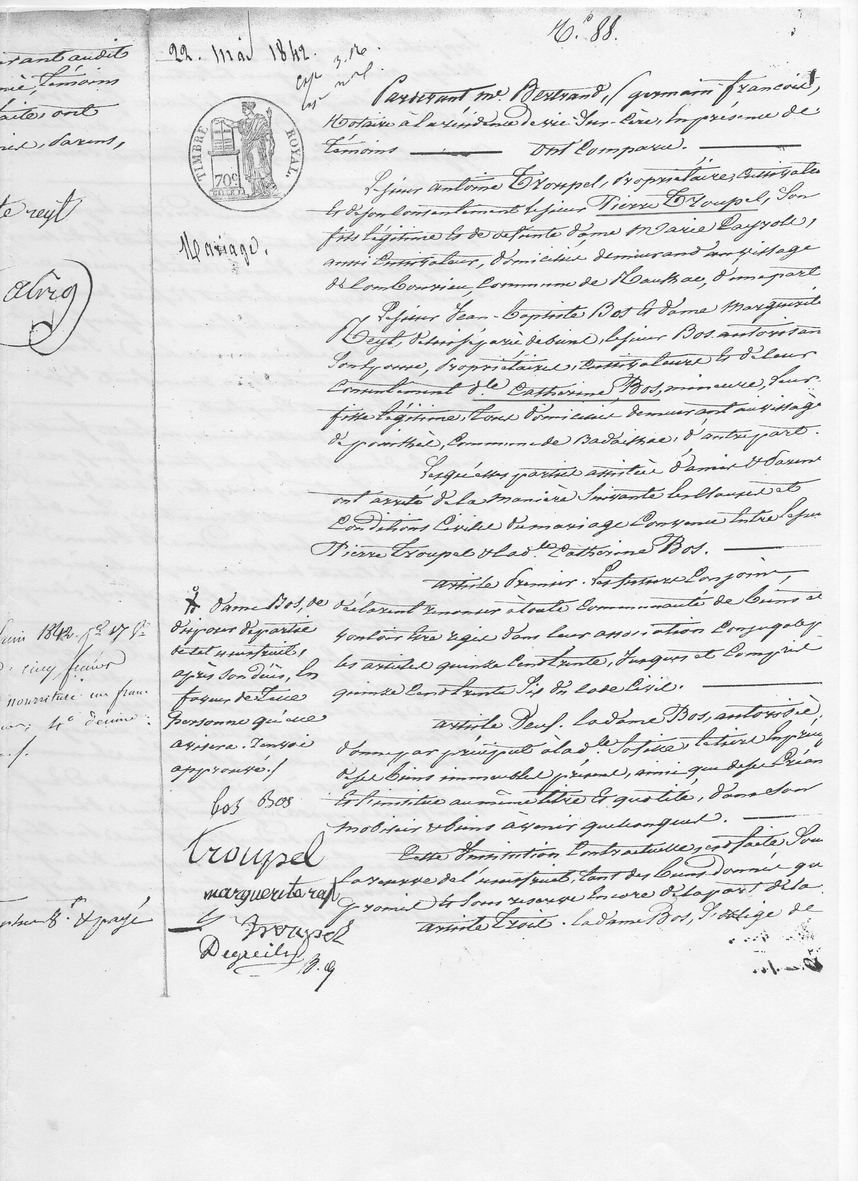 N.° 88.
22. mai 1842.
TIMBRE ROYAL
70c
Mariage.
Pardevant me. Bertrand, (germain françois),
Notaire à la résidence de vic sur-Cère, en présence de
témoins ont Comparu.
Le sieur antoine Troupel, propriétaire, cultivateur
et de son Consentement le sieur Pierre Troupel, son
fils légitime et de defunte dame Marie Layrolle,
aussi Cultivateur, domiciliés demeurant au village
de Commune de d'une part
Le sieur Jean-Baptiste Bos et dame Marguerite
Reyt, de lui séparée de biens, le sieur Bos autorisan
son épouse, propriétaires, Cultivateurs et de leur
Consentement dlle. Catherine Bos, mineure, leur
fille légitime, tous domiciliés demeurant au village
de Commune de Badailhac, d'autre part.
Lesquelles parties assistées d'amis et parens
ont arrêté de la manière suivante les Clauses et
Conditions Civiles du mariage Convenu entre le sieur
Pierre Troupel et lad.lle Catherine Bos.
article Premier. Les futurs Conjoints,
déclarent renoncer à toute Communauté de biens et
vouloir être régis dans leur association Conjugale p
les articles quinze Cent trente, jusques et Compris
quinze Cent trente six du Code Civil.
article Deux. la dame Bos, autorisée,
donne par préciput à lad.lle sa fille le tiers en préci
de ses biens immeubles présens, ainsi que de ses Créan
et l'institue au même titre et quotité, dans son
mobilier et biens à venir quelconques.
Cette Institution Contractuelle, est faite sous
la reserve de l'usufruit, tant des biens donnés qu
promis et sous reserve encore de la part de la
article Trois. la dame Bos, s'oblige de
dame Bos, de
disposer de partie
de cet usufruit,
après son décès, en
faveur de telle
personne qu'elle
avisera. renvoi
approuvé./.
bos Bos
troupel
marguerite rey
troupel
B. g
rant audit
témoins
faite, ont
parens,
te reyt
Juin 1842
cinq francs
nourriture un franc
4e
et payé